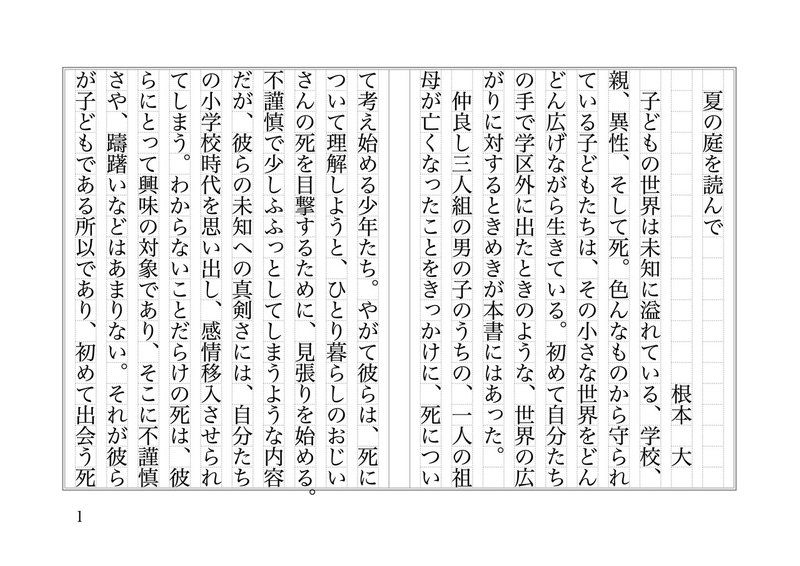 夏の庭を読んで
根本　大
　子どもの世界は未知に溢れている、学校、
親、異性、そして死。色んなものから守られ
ている子どもたちは、その小さな世界をどん
どん広げながら生きている。初めて自分たち
の手で学区外に出たときのような、世界の広
がりに対するときめきが本書にはあった。
　仲良し三人組の男の子のうちの、一人の祖
母が亡くなったことをきっかけに、死につい
て考え始める少年たち。やがて彼らは、死に
ついて理解しようと、ひとり暮らしのおじい
さんの死を目撃するために、見張りを始める。
不謹慎で少しふふっとしてしまうような内容
だが、彼らの未知への真剣さには、自分たち
の小学校時代を思い出し、感情移入させられ
てしまう。わからないことだらけの死は、彼
らにとって興味の対象であり、そこに不謹慎
さや、躊躇いなどはあまりない。それが彼ら
が子どもである所以であり、初めて出会う死
1